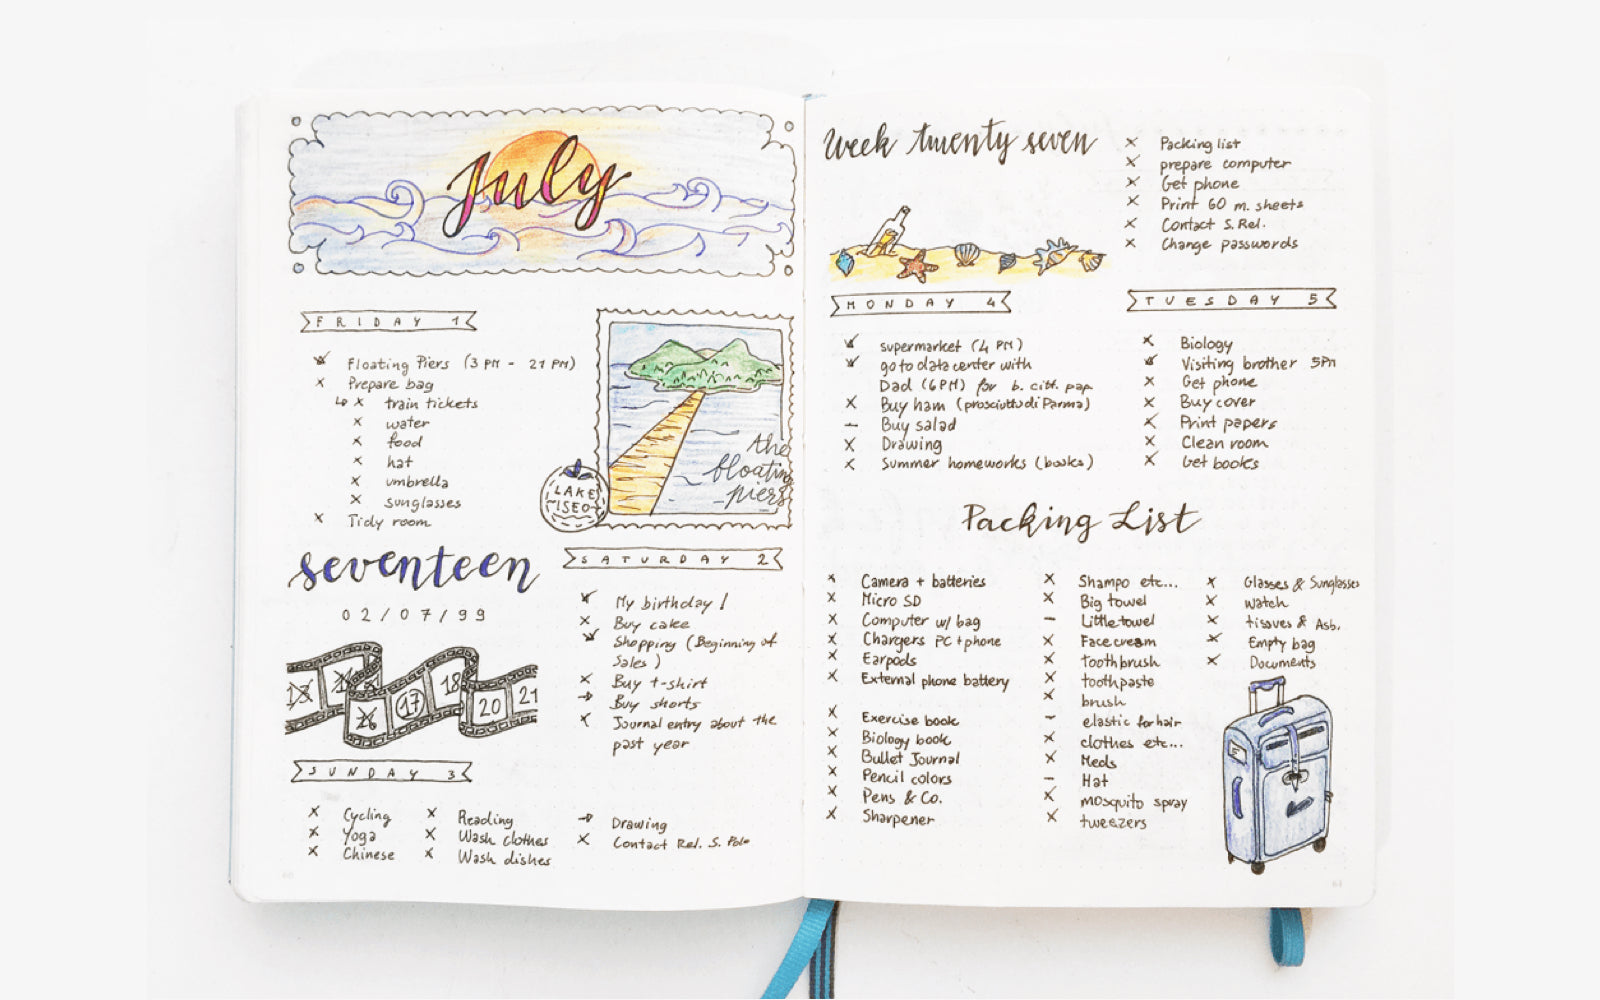 July
FRIDAY 1
Floating Piers (3 PM - 21 PM)
Prepare bag
train tickets
water
food
hat
umbrella
sunglasses
Tidy room
the
floating
piers
LAKE
ISEO
seventeen
02/07/99
15 16 17 18 20 21
26
SATURDAY 2
My birthday!
Buy cake
Shopping (Beginning of
Sales)
Buy t-shirt
Buy shorts
Journal entry about the
past year
SUNDAY 3
Cycling
Yoga
Chinese
Reading
Wash clothes
Wash dishes
Drawing
Contact Rel. S. Polo
Week twenty seven
Packing list
prepare computer
Get phone
Print 60 m. sheets
Contact S. Rel.
Change passwords
MONDAY 4
supermarket (4 PM)
go to data center with
Dad (6PM) for b. citt. pap.
Buy ham (prosciutto di Parma)
Buy salad
Drawing
Summer homeworks (books)
TUESDAY 5
Biology
Visiting brother 5PM
Get phone
Buy cover
Print papers
Clean room
Get books
Packing List
Camera + batteries
Micro SD
Computer w/ bag
Chargers PC + phone
Earpods
External phone battery
Exercise book
Biology book
Bullet Journal
Pencil colors
Pens & Co.
Sharpener
Shampo etc...
Big towel
Little towel
Face cream
toothbrush
toothpaste
brush
elastic for hair
clothes etc...
Meds
Hat
mosquito spray
tweezers
Glasses & Sunglasses
watch
tissues & Asb.
Empty bag
Documents